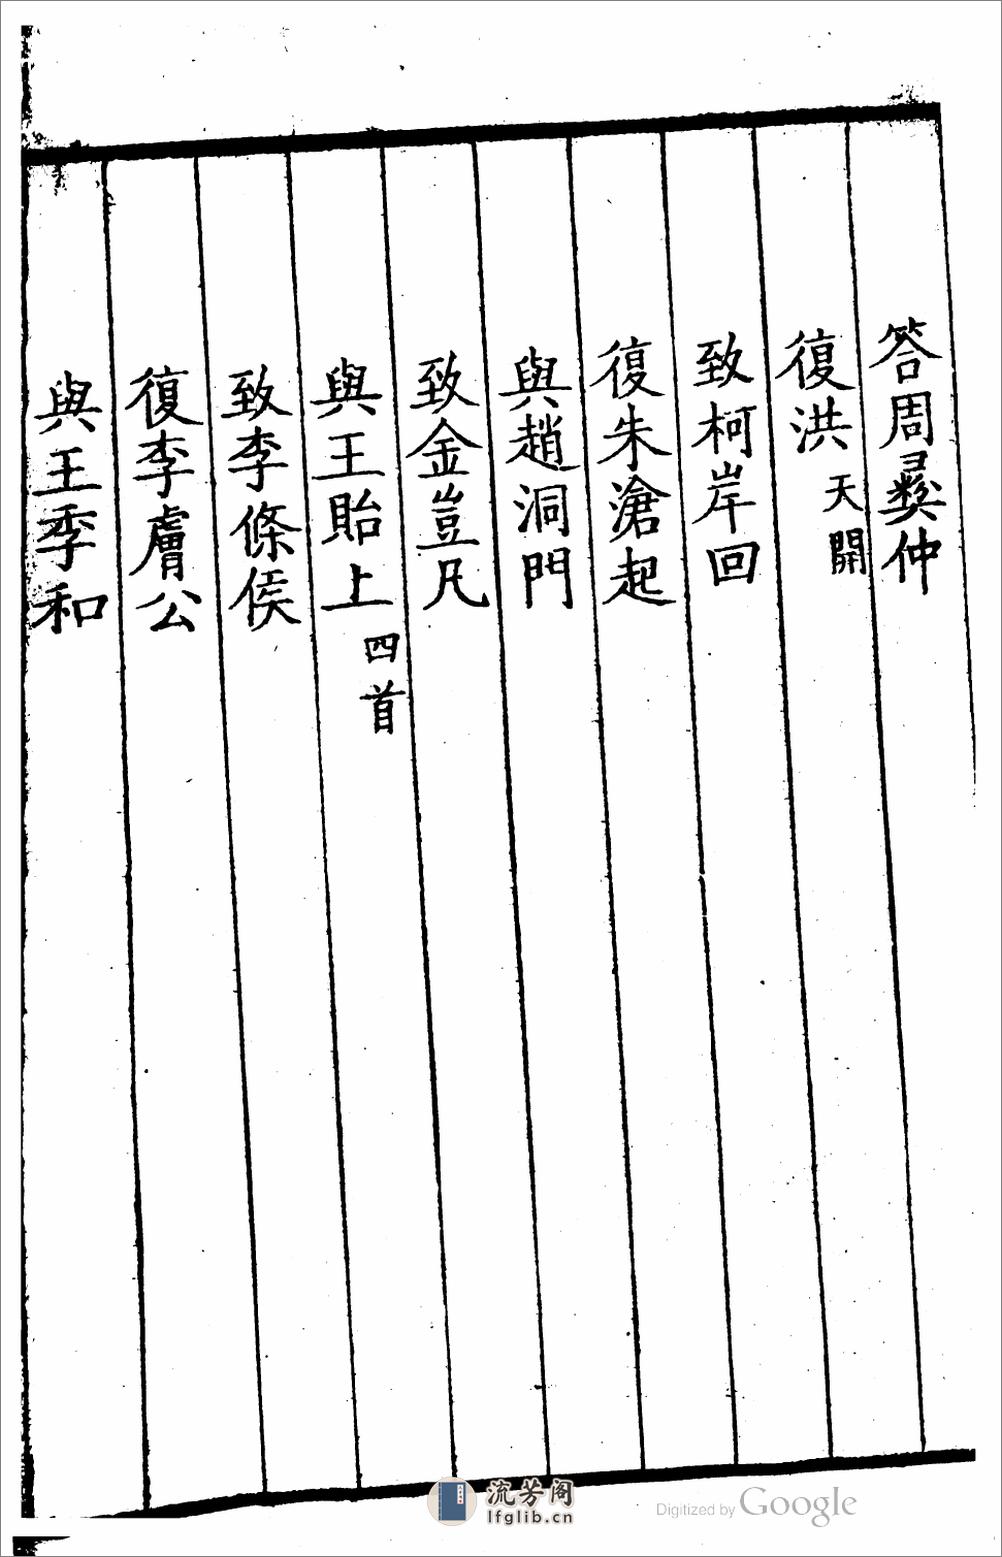 答周彝仲
復洪天開
致柯岸回
復朱滄起
與趙洞門
致金豈凡
與王貽上四首
致李條侯
復李膚公
與王季和
流芳阁
lfglib.cn
Digitized by Google